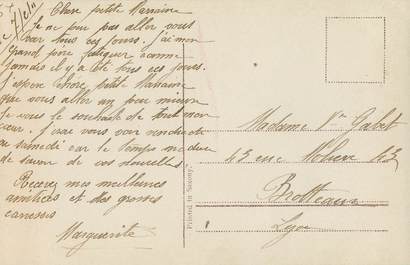 Chère petite Marraine
Je ne peux pas aller vous
voir tous ces jours. j'ai mon
grand père fatiguer comme
jamais il y a été tous ces jours.
J'espère chère petite Marraine
que vous aller un peu mieux
Je vous le souhaite de tout mon
cœur. J'irai vous voir
samedi car le temps me dure
de savoir de vos nouvelles
Recevez mes meilleures
amitiées et des grosses
caresses
Marguerite
Printed in Saxony.
Madame Vve Gabet
43 rue Molière 43
Brotteaux
Lyon